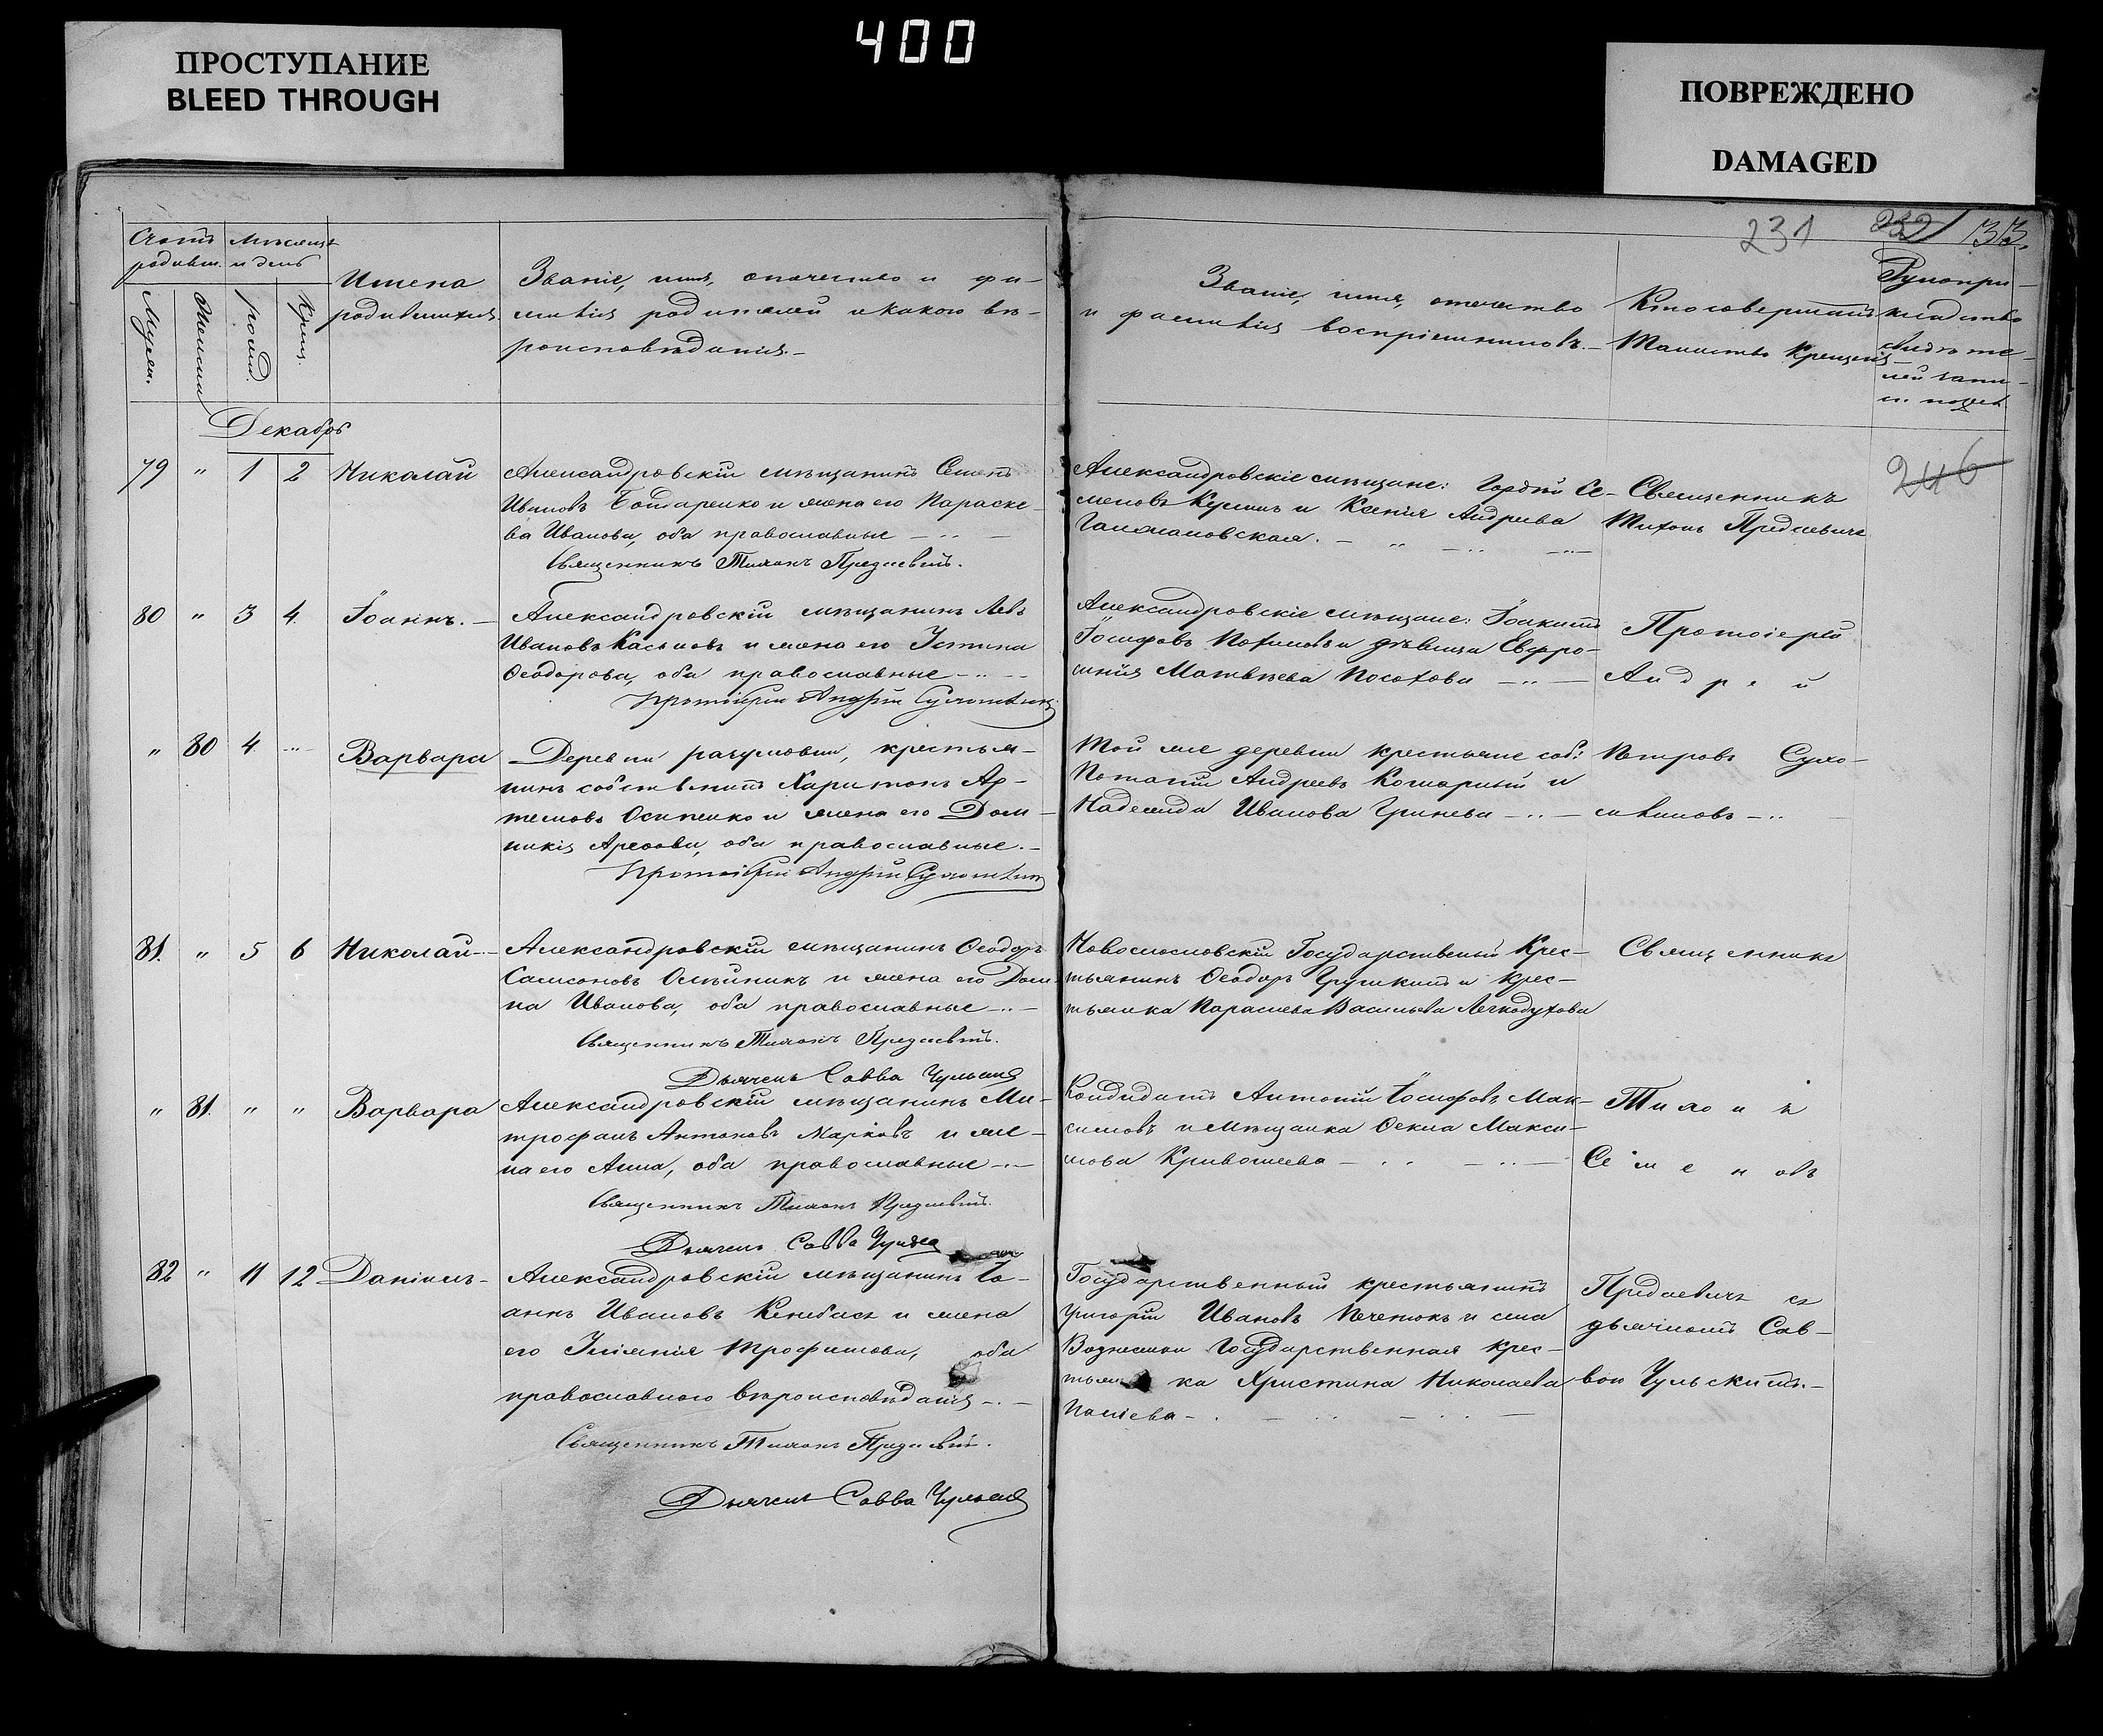 400
ПРОСТУПАНИЕ
BLEED THROUGH
ПОВРЕЖДЕНО
DAMAGED
231 232 133.
Счетъ родивш.
Мѣсяцъ и день
Мужск.
Женска
рожд.
Крещ.
Имена
родившихся.
Званіе, имя, отчество и фа-
милія родителей и какого вѣ-
роисповѣданія.-
Званіе, имя, отчество
и фамилія воспріемниковъ.-
Кто совершалъ
Таинство Крещенія
Рукопри-
кладство
свидѣте-
лей запи-
си
Декабрь
79 " 1 2 Николай
Александровскій мѣщанинъ Семенъ
Ивановъ Бондаренко и жена его Параске-
ва Иванова, оба православные
Священникъ Тихонъ Придаевичъ.
Александровскіе мѣщане: Гордѣй Се-
меновъ и Ксенія Андреева
Священникъ
Тихонъ Придаевичъ
246
80 " 3 4. Іоаннъ.-
Александровскій мѣщанинъ Левъ
Ивановъ Касьновъ и жена его Устина
Ѳеодорова, оба православные
Протоіерей Андрей Сухомлиновъ
Александровскіе мѣщане: Іоакимъ
Іосифовъ и дѣвица Евфро-
синія Матвѣева Посохова
Протоіерей
Андрей
" 80 4. Варвара
Деревни Разумовки, крестья-
нинъ собственникъ Харитонъ Ар-
темовъ Осипенко и жена его Дом-
никія оба православные.-
Протоіерей Андрей Сухомлиновъ
Той же деревни крестьяне соб:
Потапій Андреевъ Кошарный и
Надежда Иванова Гринева
Петровъ Сухо-
млиновъ
81. " 5 6 Николай
Александровскій мѣщанинъ Ѳеодоръ
Самсоновъ Олѣйникъ и жена его Дом-
на Иванова, оба православные
Священникъ Тихонъ Придаевичъ.
Дьячекъ Савва Чульскій
Государственный Крес-
тьянинъ Ѳеодоръ и крес-
тьянка Параскева Васильева Легкодухова
Священникъ
" 81. " " Варвара
Александровскій мѣщанинъ Ми-
трофанъ Антоновъ Марковъ и же-
на его Анна, оба православные
Священникъ Тихонъ Придаевичъ.
Дьячекъ Савва Чульскій
Кандидатъ Антоній Іосифовъ Мак-
симовъ и Мѣщанка Ѳекла Макси-
мова Кривошеева
Тихонъ
Семеновъ
82 " 11 12 Даніилъ-
Александровскій мѣщанинъ Іо-
аннъ Ивановъ и жена
его Іуліанія Трофимова, оба
православного вѣроисповѣданія
Священникъ Тихонъ Придаевичъ.
Дьячекъ Савва Чульскій
Государственный крестьянинъ
Григорій Ивановъ Печенюкъ и села
Вознесенки Государственная крес-
тьянка Христина Николаева
Придаевичъ съ
дьячкомъ Сав-
вою Чульскимъ.-